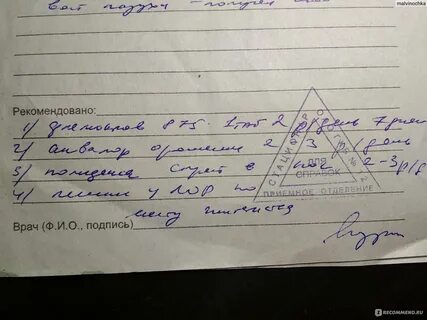 malvinochka
Рекомендовано:
1) флемоклав 875 - 1 таб 2 р/день 7 дней
2) аквалор орошения 2-3 р/день
3) полидекса спрей в нос 2-3 р/д
4) лечение у ЛОР по
месту жительства
Врач (Ф.И.О., подпись)
СТАЦИОНАР
ДЛЯ
СПРАВОК
ПРИЕМНОЕ ОТДЕЛЕНИЕ
RECOMMEND.RU